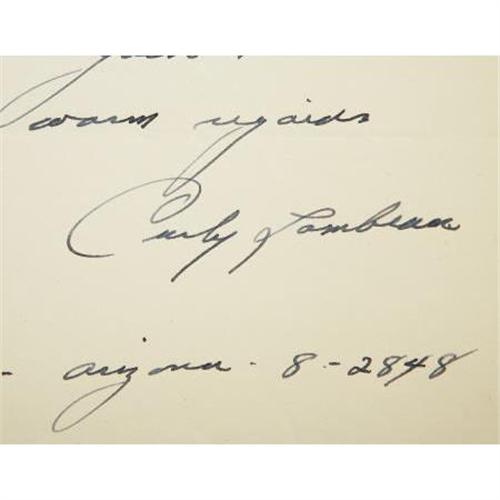 warm regards
Curly Lambeau
- arizona - 8-2848